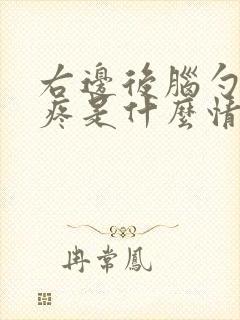 右邊後腦勺
疼是什麼情
冉常鳳